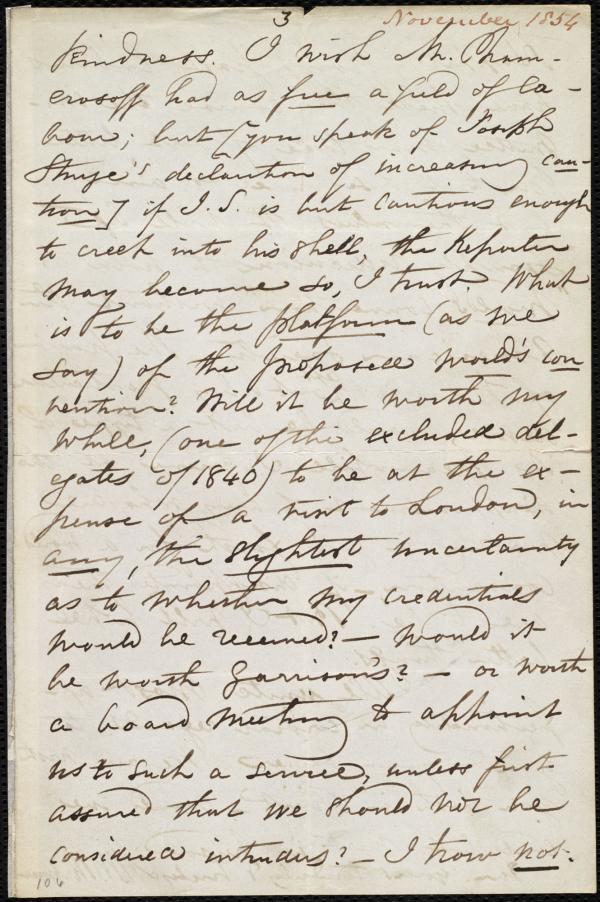 3
November 1854
kindness. I wish M. Cham-
erosoff had as free a field of la-
bour; but (you speak of Joseph
Sturge's declaration of increasing cau-
tion) if J.S. is but cautious enough
to creep into his shell, the Reporter
may become so, I trust. What
is to be the platform (as we
say) of the proposed world's con
vention? Will it be worth my
while, (one of the excluded del-
egates of 1840) to be at the ex-
pense of a visit to London, in
any, the slightest uncertainty
as to whether my credentials
would be received?— Would it
be worth Garrison's? — or worth
a board meeting to appoint
us to such a service, unless first
assured that we should not be
considered intruders? — I trow not.
106